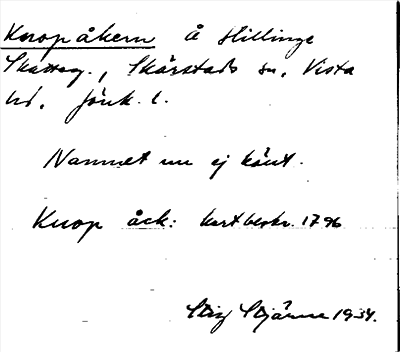 Knopåkern Å Hillinge
Skatteg., Skärstads sn. Vista
hd. Jönk. l.
Namnet nu ej känt.
Knop åck: kartbeskr. 1796
Stig Stjärne 1934.